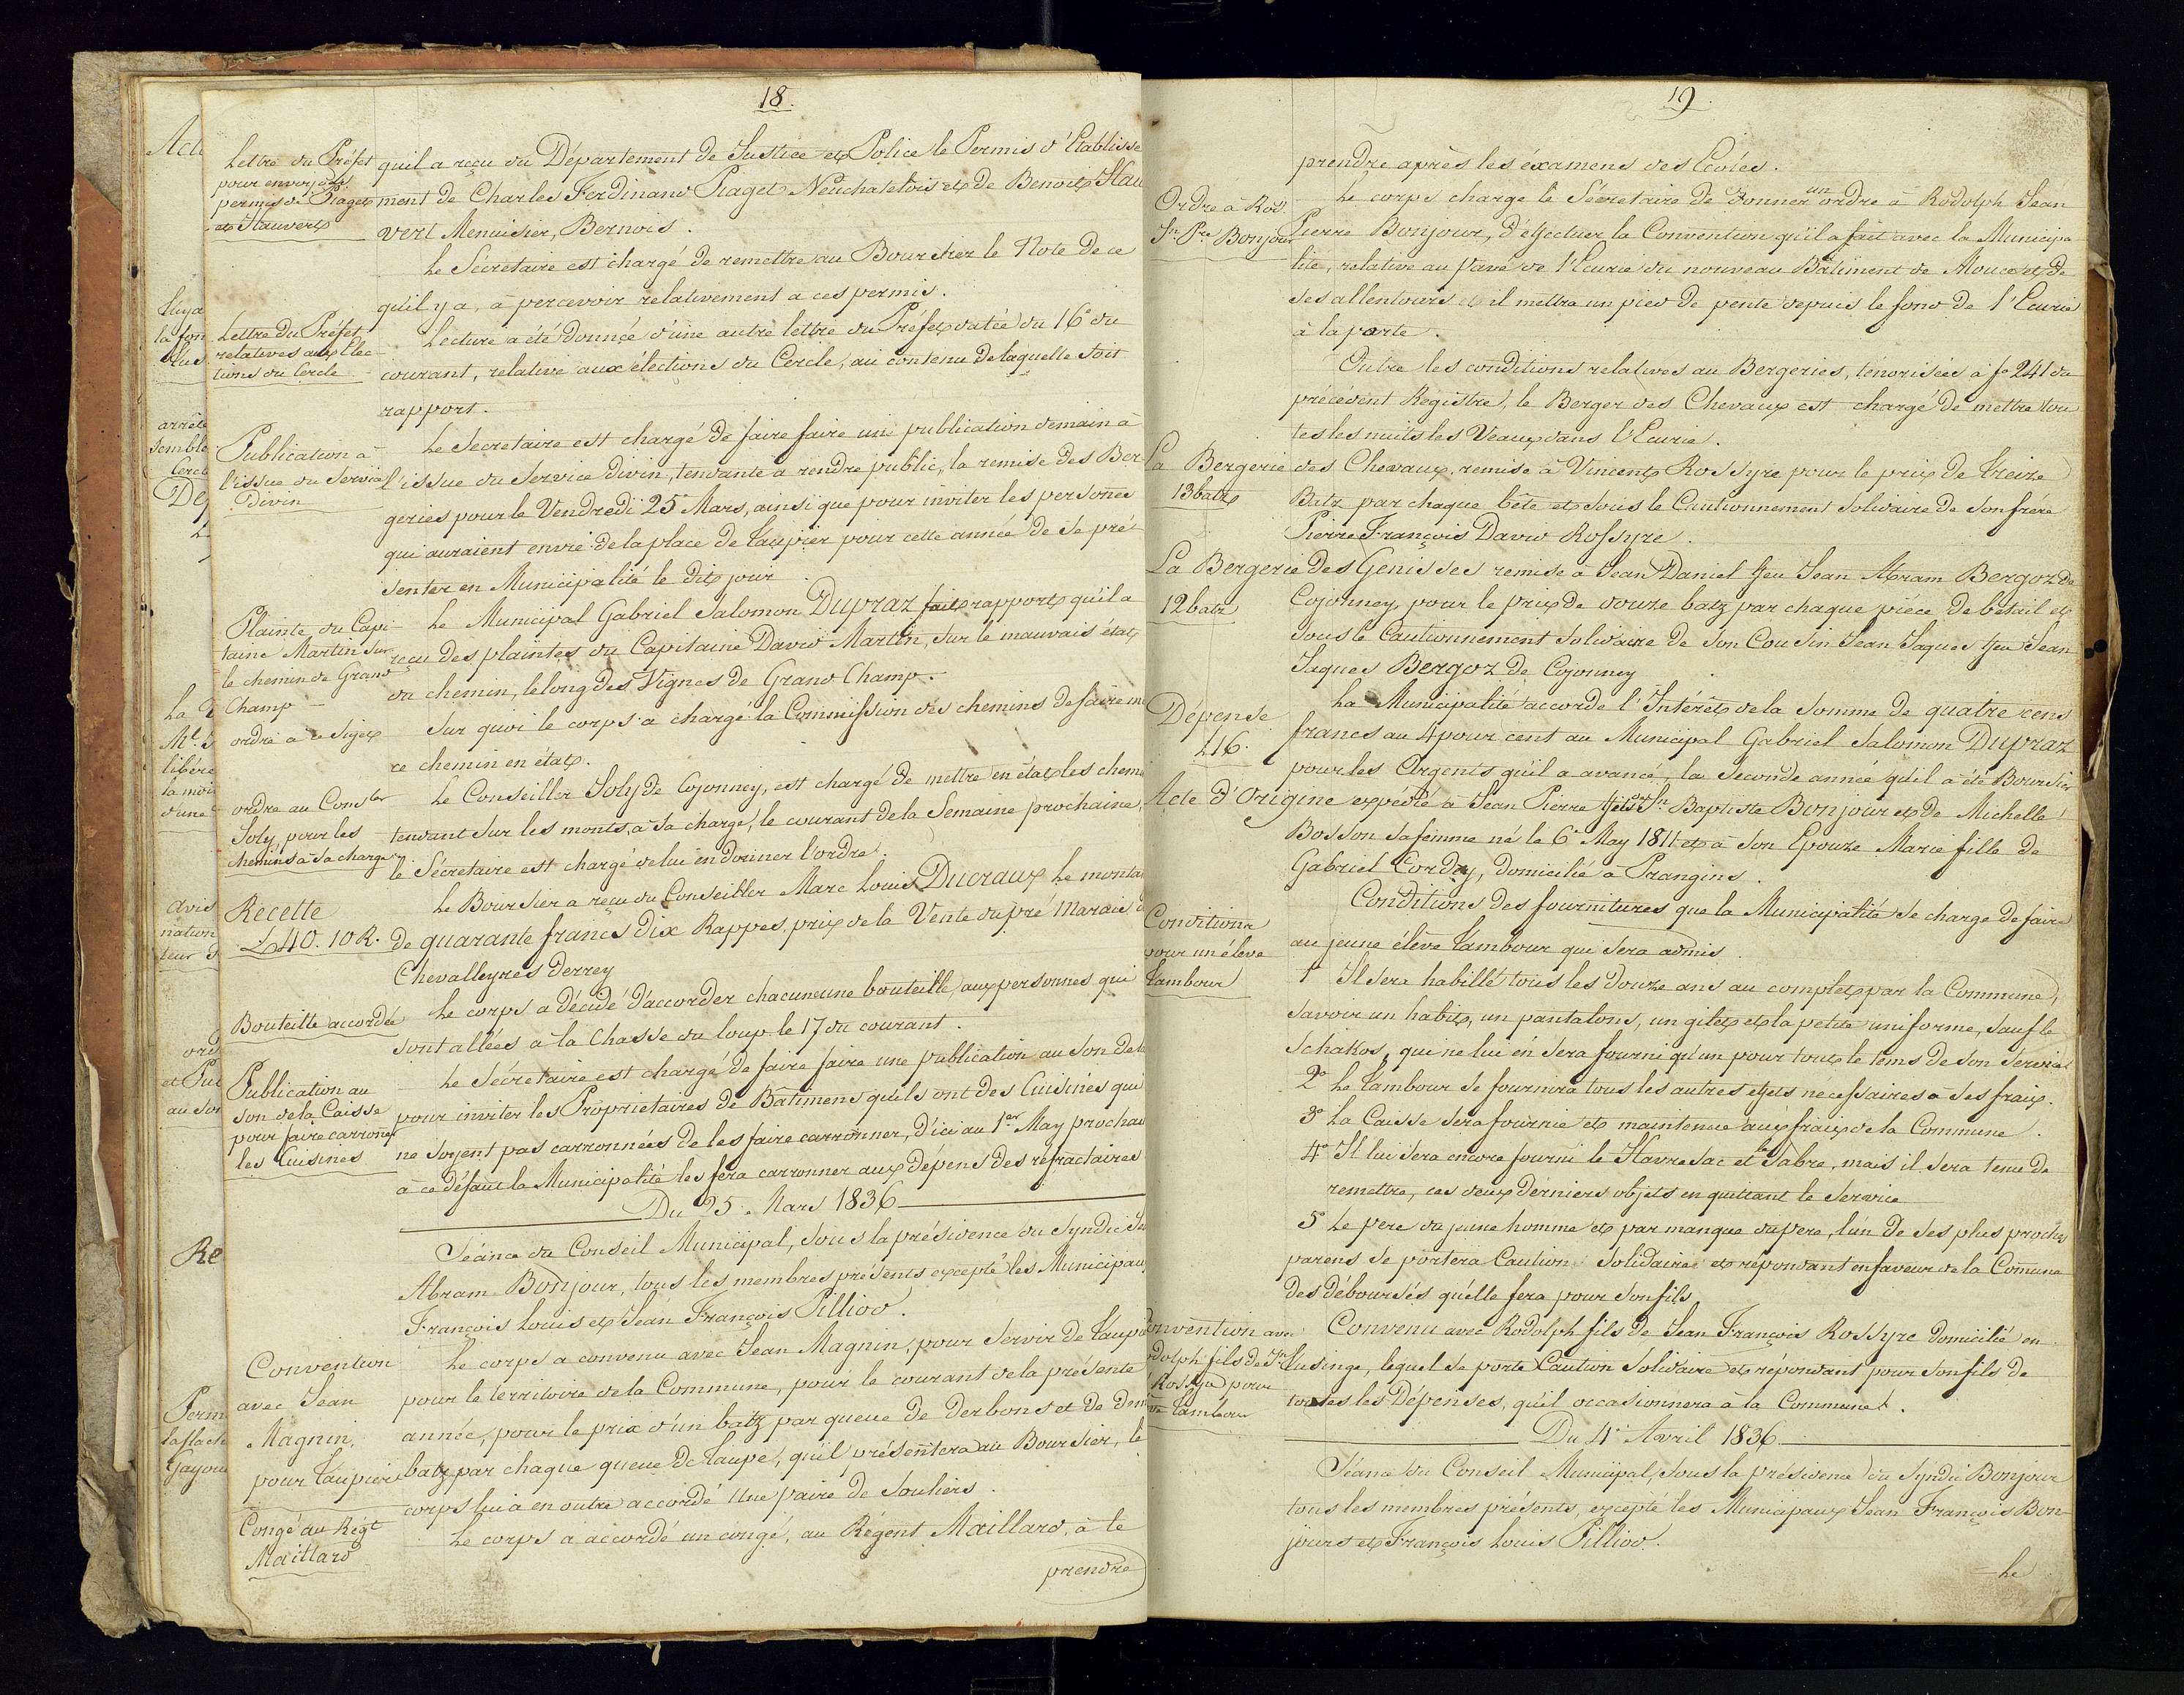 18.
Lettre du Préfet
pour envoyer les
permis de Piaget
et Stauvert
qu'il a reçu du Département de Justice et Police le Permis d'Etablisse
ment de Charles Ferdinand Piaget Neuchatelois et de Benoit Stau
vert Menuisier, Bernois.
Le Sécretaire est chargé de remettre au Boursier le Note de ce
qu'il y a, à percevoir relativement a ces permis.
Lettre du Préfet
relatives aux Elec
tions du Cercle
Lecture a été donnée d'une autre lettre du Préfet datée du 16e du
courant, relative aux élections du Cercle, au contenu de laquelle soit
rapport.
Publication à
l'issue du Service
Divin
Le Secretaire est chargé de faire faire une publication demain à
l'issue du Service divin, tendante a rendre public, la remise des Ber
geries pour le Vendredi 25e Mars, ainsi que pour inviter les personnes
qui auraient envie de la place de taupier pour cette année de se pré
senter en Municipalité le dit jour.
Plainte du Capi
taine Martin sur
le chemin de Grand
Champ
ordre à ce Sujet
Le Municipal Gabriel Salomon Dupraz fait rapport qu'il a
reçu des plaintes du Capitaine David Martin, sur le mauvais état
du chemin, le long des Vignes de Grand Champ.
Sur quoi le corps a chargé la Commission des chemins de faire me
ce chemin en état.
ordre au Conser
Joly, pour les
chemins à sa charge
Le Conseiller Joly de Cojonney, est chargé de mettre en état les chem
tendant sur les monts, à sa charge, le courant de la Semaine prochaine,
le Sécretaire est chargé de lui en donner l'ordre.
Recette
L 40. 10 R.
Le Boursier a reçu du Conseiller Marc Louis Ducraux le monta
de quarante francs dix Rappes, prix de la Vente du pré Marais
Chevalleyres derrey
Bouteille accordée
Le corps a décidé d'accorder chacune une bouteille, aux personnes qui
sont allées a la Chasse du loup le 17 du courant.
Publication au
son de la Caisse
pour faire carronner
les Cuisines
Le Sécretaire est chargé de faire faire une publication au son de
pour inviter les Propriétaires de Batimens quels ont des Cuisines qui
ne soyent pas carronnées de les faire carronner, d'ici au 1er May prochai
à ce défaut la Municipalité les fera carronner aux dépens des réfractaires
Du 25e Mars 1836
Séance du Conseil Municipal, sous la présidence du Syndic
Abram Bonjour, tous les membres présents excepté les Municipaux
François Louis et Jean François Pilliod.
Convention
avec Jean
Magnin,
pour taupier
Le corps a convenu avec Jean Magnin, pour servir de taupi
pour le territoire de la Commune, pour le courant de la présente
année, pour le prix d'un batz par queue de derbons et de dem
batz par chaque queue de taupe, qu'il présentera au Boursier, le
corps lui a en outre accordé une paire de Souliers.
Congé au Régt
Maillard
Le corps a accordé un congé, au Régent Maillard, à le
prendre
19.
prendre après les éxamens des Ecoles.
Ordre à Rod.
Jn Pre Bonjour
Le corps charge le Sécretaire de donner un ordre à Rodolph Jean
Pierre Bonjour, d'effectuer la Convention qu'il a fait avec la Municipa
lité, relative au Pavé de l'Ecurie du nouveau Bâtiment de Mouce et de
ses allentours et il mettra un pied de pente depuis le fond de l'Ecurie
à la porte.
Outre les conditions relatives au Bergeries, ténorisées à fo 241 du
précédent Registre, le Berger des Chevaux est chargé de mettre tou
tes les nuits les Veaux dans l'Ecurie.
La Bergerie des Chevaux, remise à Vincent Rossyre pour le prix de treize
13 batz
Batz par chaque bête et sous le Cautionnement solidaire de son frére
Pierre François David Rossyre.
La Bergerie des Genisses remise à Jean Daniel feu Jean Abram Bergoz de
12 batz
Cojonney, pour le prix de douze batz par chaque pièce de bétail et
sous le Cautionnement solidaire de son Cousin Jean Jaques feu Jean
Jaques Bergoz de Cojonney
Dépense
L16.
La Municipalité accorde l'Intérêt de la somme de quatre cens
francs au 4 pour cent au Municipal Gabriel Salomon Dupraz
pour les Argents qu'il a avancé, la seconde année qu'il a été Boursier
Acte d'Origine expédié à Jean Pierre fils de Jn Baptiste Bonjour et de Michelle
Bosson sa femme né le 6e May 1811 et à son Epouze Marie fille de
Gabriel Cordey, domicilié a Prangins.
Conditions
pour un éleve
tambour
Conditions des fournitures que la Municipalité se charge de faire
au jeune éléve tambour qui sera admis.
1o Il sera habillé tous les douze ans au complet par la Commune,
savoir un habit, un pantalons, un gilet et la petite uniforme, sauf le
schakos, qui ne lui en sera fourni qu'un pour tout le tems de son service
2o Le tambour se fournira tous les autres effets nécessaires à ses fraix.
3o La Caisse sera fournie et maintenue aux fraix de la Commune.
4o Il lui sera encore fourni le Havresac et le sabre, mais il sera tenu de
remettre, ces deux dérniers objets en quittant le service
5o Le pere du jeune homme et par manque du pere, l'un de ses plus proches
parens se portera Caution solidaire et répondant en faveur de la Comune
des déboursés qu'elle fera pour son fils.
Convention avec
Rodolph fils de Jn Fs
Rossyre pour
tambour
Convenu avec Rodolph fils de Jean François Rossyre domicilié en
Lusinge, lequel se porte Caution solidaire et répondant pour son fils de
toutes les Dépenses, qu'il occasionnera à la Commune.
Du 4e Avril 1836
Séance du Conseil Municipal, sous la présidence du Syndic Bonjour
tous les membres présents, excepté les Municipaux Jean François Bon-
jours et François Louis Pilliod.
Le